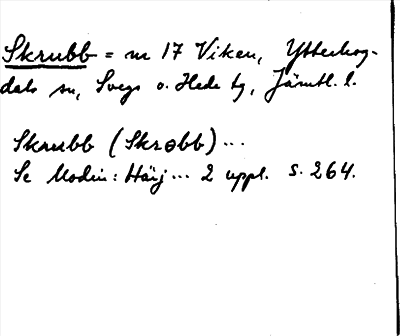 Skrubb = m 17 Viken, Ytterhog-
dals sn, Svegs o. Hede tg, Jämtl. l.
Skrubb (Skrobb)...
Se Modin: Härj... 2 uppl. s. 264.